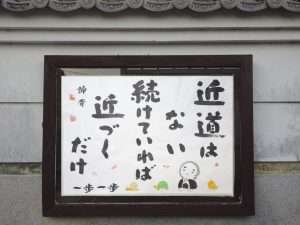 近道は
ない
続けていれば
近づく
だけ
一歩一歩